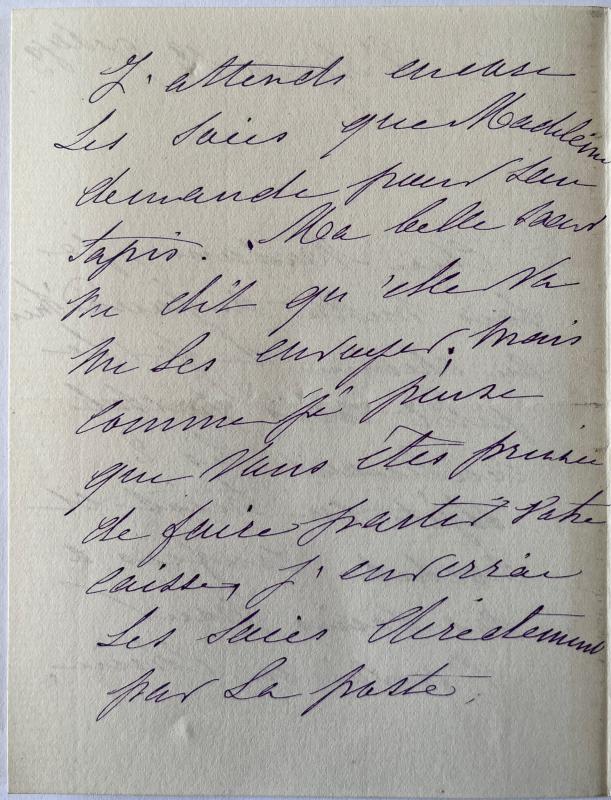 J'attends encore
les soies que Madeleine
demande pour son
tapis. Ma belle soeur
me dit qu'elle va
me les envoyer, mais
comme je pense
que vous êtes pressée
de faire partir votre
caisse, j'enverrai
les soies directement
par la poste.